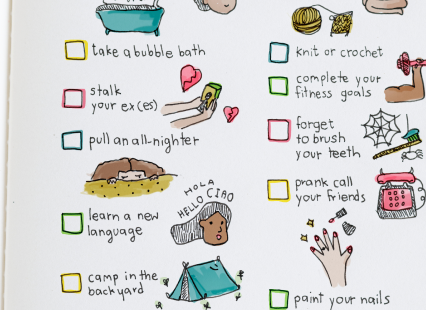 take a bubble bath
stalk
your ex(es)
pull an all-nighter
HOLA
HELLO CIAO
learn a new
language
camp in the
backyard
knit or crochet
complete your
fitness goals
forget
to brush
your teeth
prank call
your friends
paint your nails